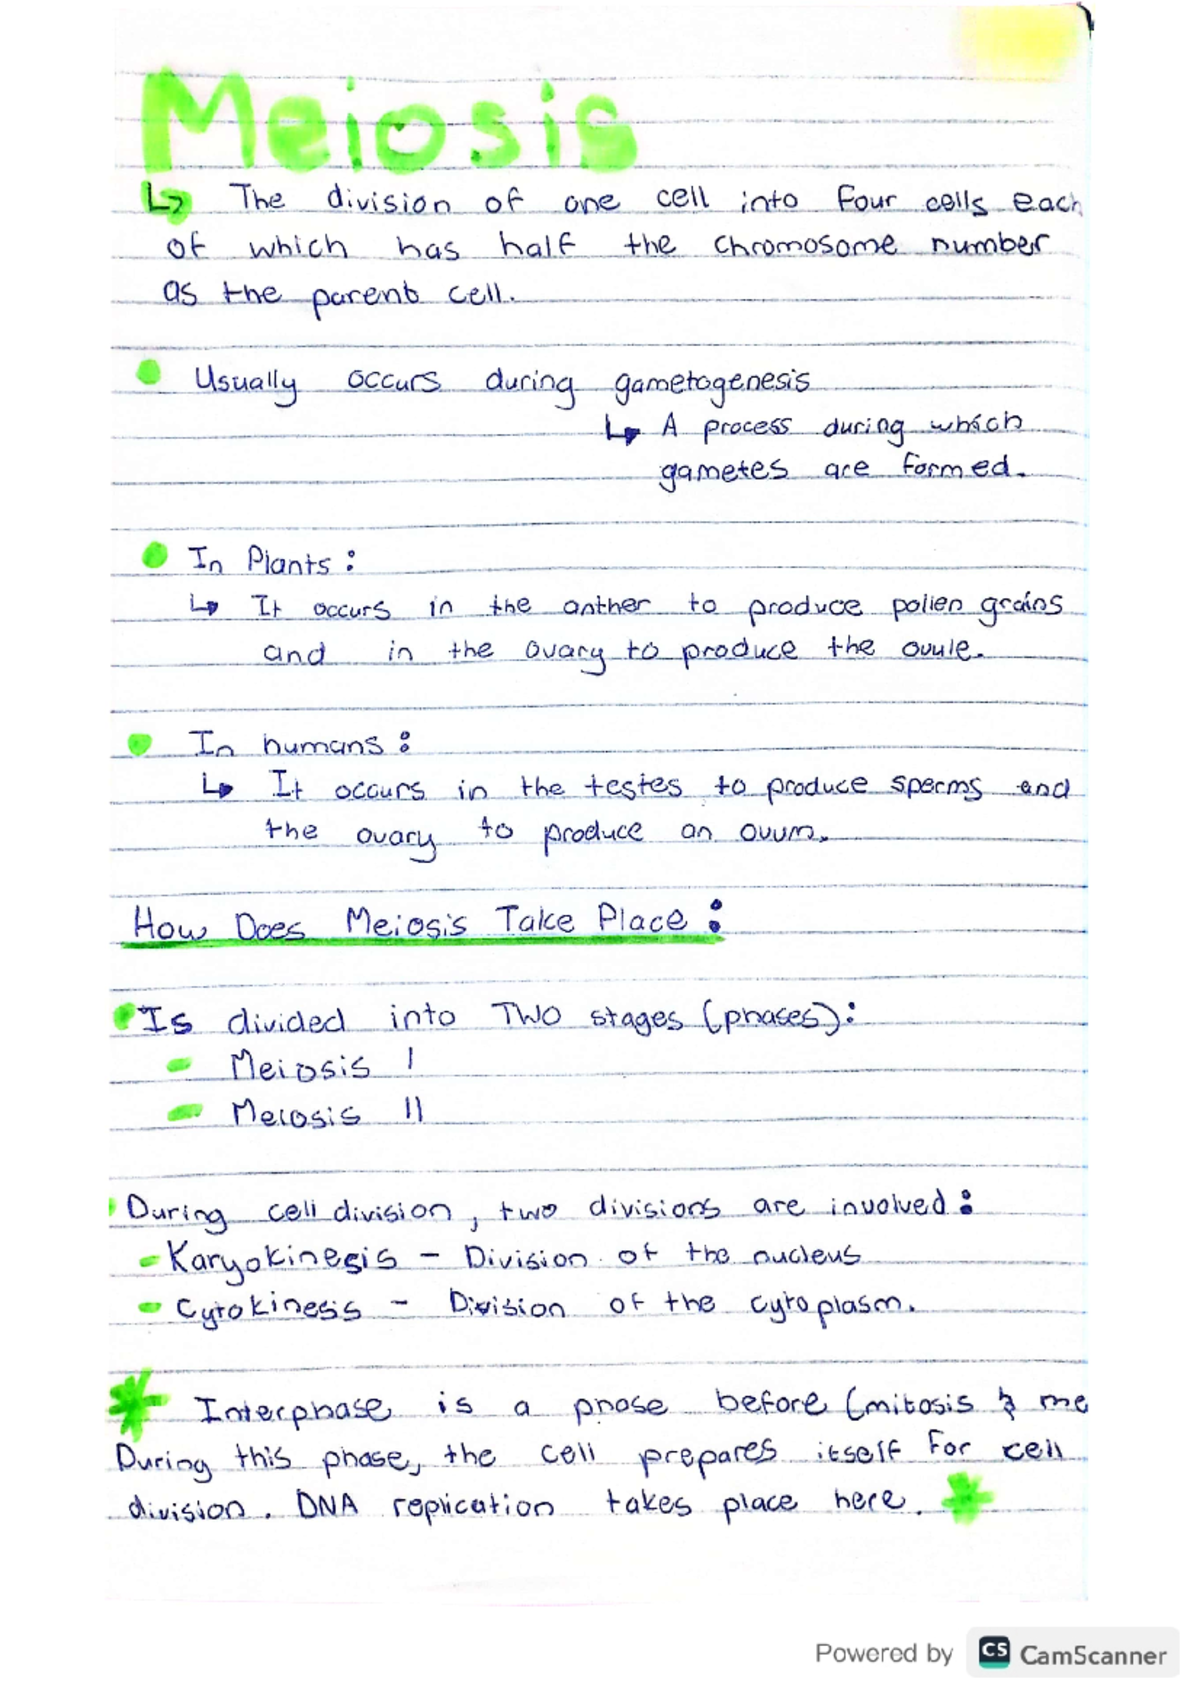 Meiosis
↳ The division of one cell into four cells each
of which has half the chromosome number
as the parent cell.
Usually occurs during gametogenesis
↳ A process during which
gametes are formed.
In Plants :
↳ It occurs in the anther to produce pollen grains
and in the ovary to produce the ovule.
In humans :
↳ It occurs in the testes to produce sperms and
the ovary to produce an ovum.
How Does Meiosis Take Place :
Is divided into TWO stages (phases):
- Meiosis I
- Meiosis II
During cell division, two divisions are involved :
- Karyokinesis - Division of the nucleus
- Cytokinesis - Division of the cytoplasm.
* Interphase is a phase before (mitosis & me
During this phase, the cell prepares itself for cell
division. DNA replication takes place here. *
Powered by CS CamScanner